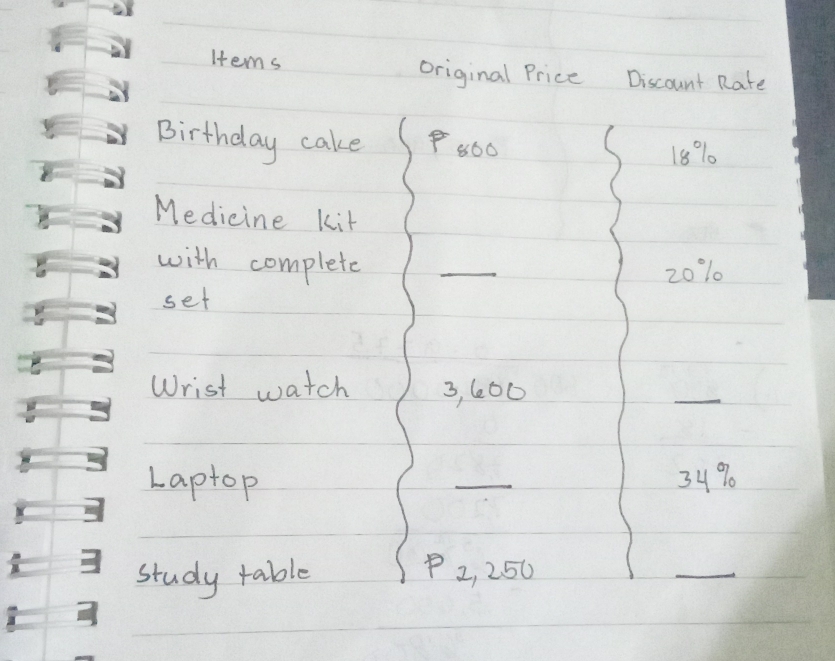 Items Original Price Discount Rate
Birthday cake ₱800 18%
Medicine kit
with complete — 20%
set
Wrist watch 3,600 —
Laptop — 34%
Study table ₱2,250 —